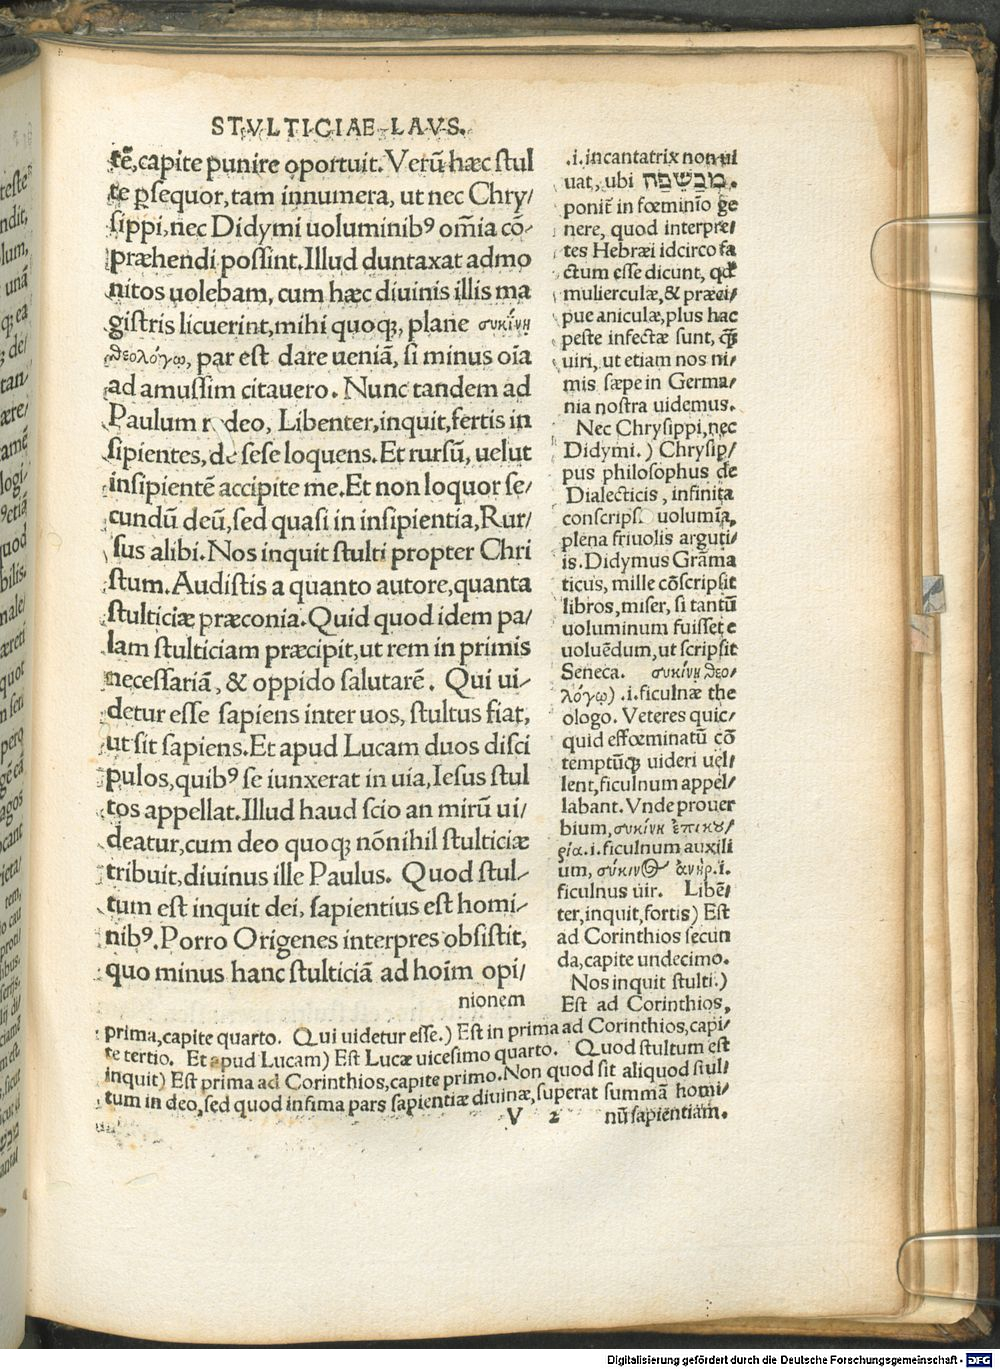 STVLTICIAE LAVS.
tē, capite punire oportuit. Verū hæc stul
te ꝑsequor, tam innumera, ut nec Chry/
sippi, nec Didymi uoluminibꝰ om̄ia cō-
præhendi possint. Illud duntaxat admo
nitos uolebam, cum hæc diuinis illis ma
gistris licuerint, mihi quoqꝫ, plane συκίνῃ
θεολόγῳ, par est dare ueniā, si minus oīa
ad amussim citauero. Nunc tandem ad
Paulum redeo, Libenter, inquit, fertis in
sipientes, de sese loquens. Et rursū, uelut
insipientē accipite me. Et non loquor se/
cundū deū, sed quasi in insipientia, Rur/
sus alibi. Nos inquit stulti propter Chri
stum. Audistis a quanto autore, quanta
stulticiæ præconia. Quid quod idem pa/
lam stulticiam præcipit, ut rem in primis
necessariā, & oppido salutarē. Qui ui/
detur esse sapiens inter uos, stultus fiat,
ut sit sapiens. Et apud Lucam duos disci
pulos, quibꝰ se iunxerat in uia, Iesus stul
tos appellat. Illud haud scio an mirū ui/
deatur, cum deo quoqꝫ nōnihil stulticiæ
tribuit, diuinus ille Paulus. Quod stul-
tum est inquit dei, sapientius est homi-
nibꝰ. Porro Origenes interpres obsistit,
quo minus hanc stulticiā ad hoīm opi/
nionem
.i. incantatrix non ui
uat, ubi מכשפה.
ponit̄ in fœminīo ge
nere, quod interpre/
tes Hebræi idcirco fa
ctum esse dicunt, qď
mulierculæ, & præci/
pue aniculæ, plus hac
peste infectæ sunt, q̄ꝫ
uiri, ut etiam nos ni/
mis sæpe in Germa/
nia nostra uidemus.
Nec Chrysippi, nec
Didymi.) Chrysip/
pus philosophus de
Dialecticis, infinita
conscripsi uolumīa,
plena friuolis arguti/
is. Didymus Grāma
ticus, mille cōscripsit
libros, miser, si tantū
uoluminum fuisset e
uoluēdum, ut scripsit
Seneca. συκίνῃ θεο/
λόγῳ) .i. ficulnæ the
ologo. Veteres quic/
quid effœminatū cō
temptūqꝫ uideri uel/
lent, ficulnum appel/
labant. Vnde prouer
bium, συκίνη ἐπικου/
ρία .i. ficulnum auxili
um, σύκινος ἀνήρ .i.
ficulnus uir. Libē/
ter, inquit, fortis) Est
ad Corinthios secun
da, capite undecimo.
Nos inquit stulti.)
Est ad Corinthios,
prima, capite quarto. Qui uidetur esse.) Est in prima ad Corinthios, capi/
te tertio. Et apud Lucam) Est Lucæ uicesimo quarto. Quod stultum est
inquit) Est prima ad Corinthios, capite primo. Non quod sit aliquod stul/
tum in deo, sed quod infima pars sapientiæ diuinæ, superat summā homi/
V 2 nū sapientiam.
Digitalisierung gefördert durch die Deutsche Forschungsgemeinschaft - DFG